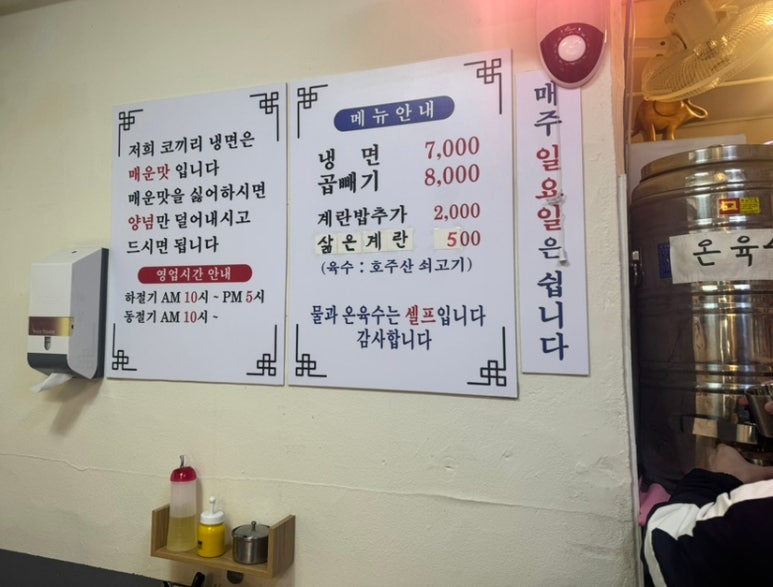 저희 코끼리 냉면은
매운맛 입니다
매운맛을 싫어하시면
양념만 덜어내시고
드시면 됩니다
영업시간 안내
하절기 AM 10시 ~ PM 5시
동절기 AM 10시 ~
메뉴안내
냉 면 7,000
곱빼기 8,000
계란밥추가 2,000
삶은계란 500
(육수 : 호주산 쇠고기)
물과 온육수는 셀프입니다
감사합니다
매주 일요일은 쉽니다
온육수